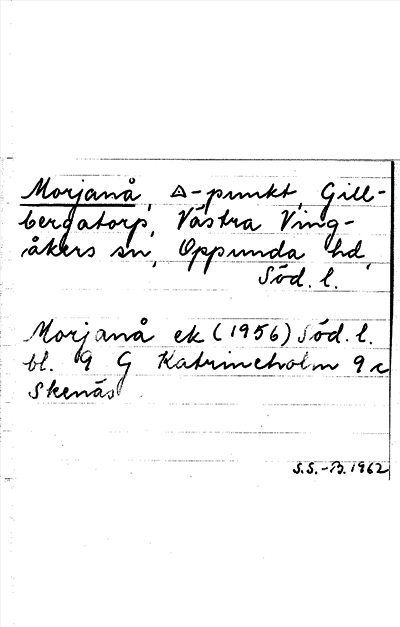 Morjanå, △-punkt, Gill-
bergatorp, Västra Ving-
åkers sn, Oppunda hd,
Söd. l.
Morjanå ek (1956) Söd. l.
bl. 9 G Katrineholm 9 c
Skenäs
S.S.-B. 1962